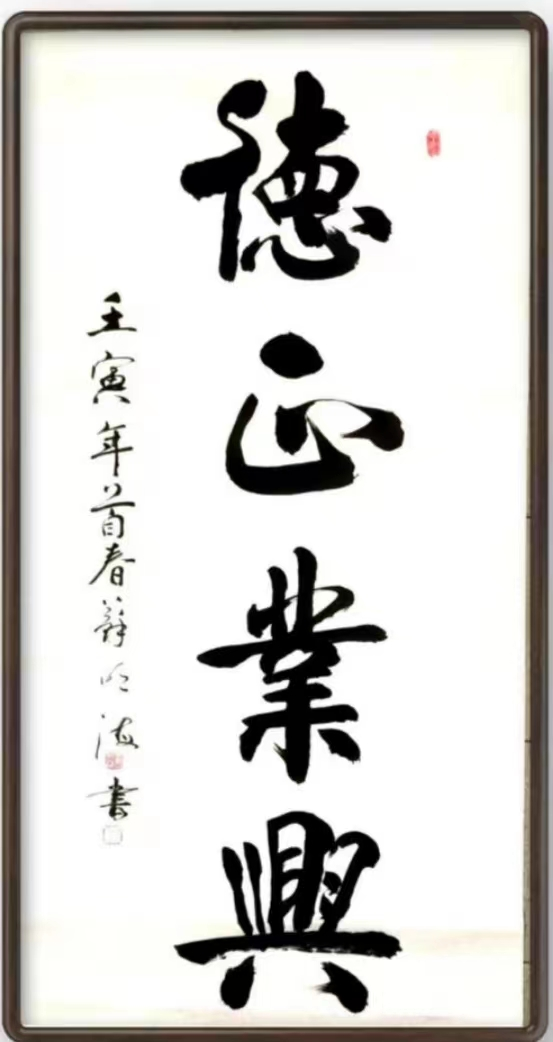 德正業興
壬寅年首春薛明海書